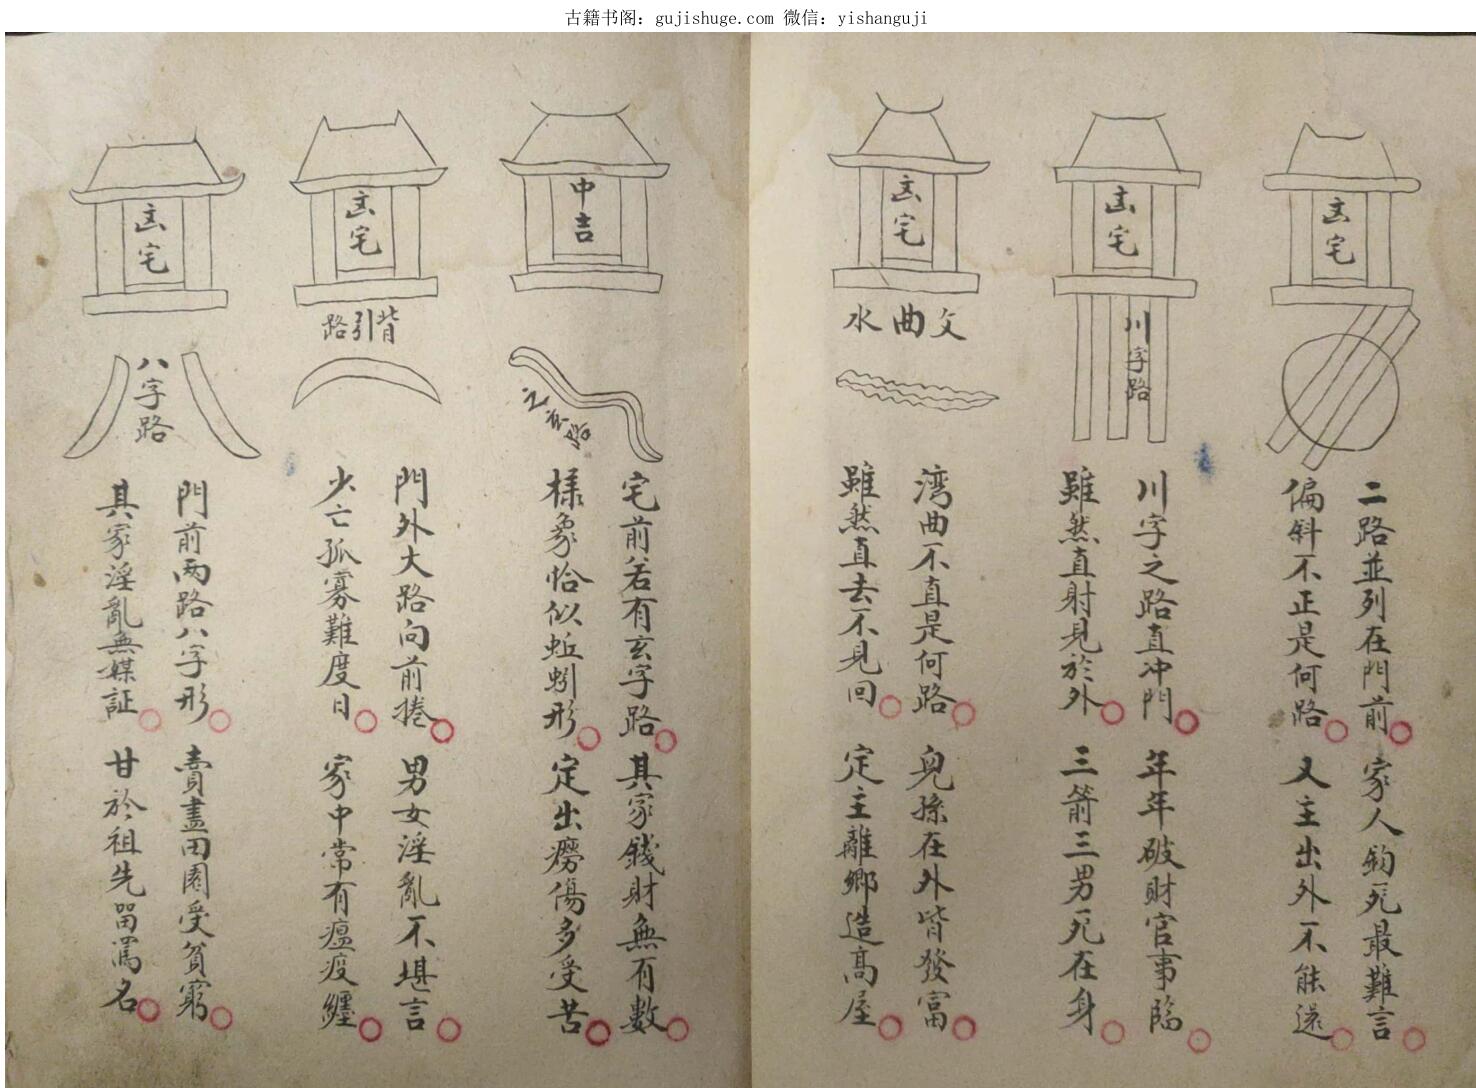 古籍书阁：gujishuge.com 微信：yishanguji
凶宅
二路並列在門前 家人鈎死最難言
偏斜不正是何路 又主出外不能還
凶宅
川字路
川字之路直冲門 年年破財官事臨
雖然直射見於外 三箭三男死在身
凶宅
文曲水
湾曲不直是何路 兒孫在外皆發富
雖然直去不見回 定主離鄉造高屋
中吉
宅前若有玄字路 其家錢財無有數
樣象恰似蚯蚓形 定出癆傷多受苦
凶宅
背引路
門外大路向前捲 男女淫亂不堪言
少亡孤寡難度日 家中常有瘟疫纏
凶宅
八字路
門前両路八字形 賣盡田園受貧窮
其家淫亂無媒証 甘於祖先留罵名